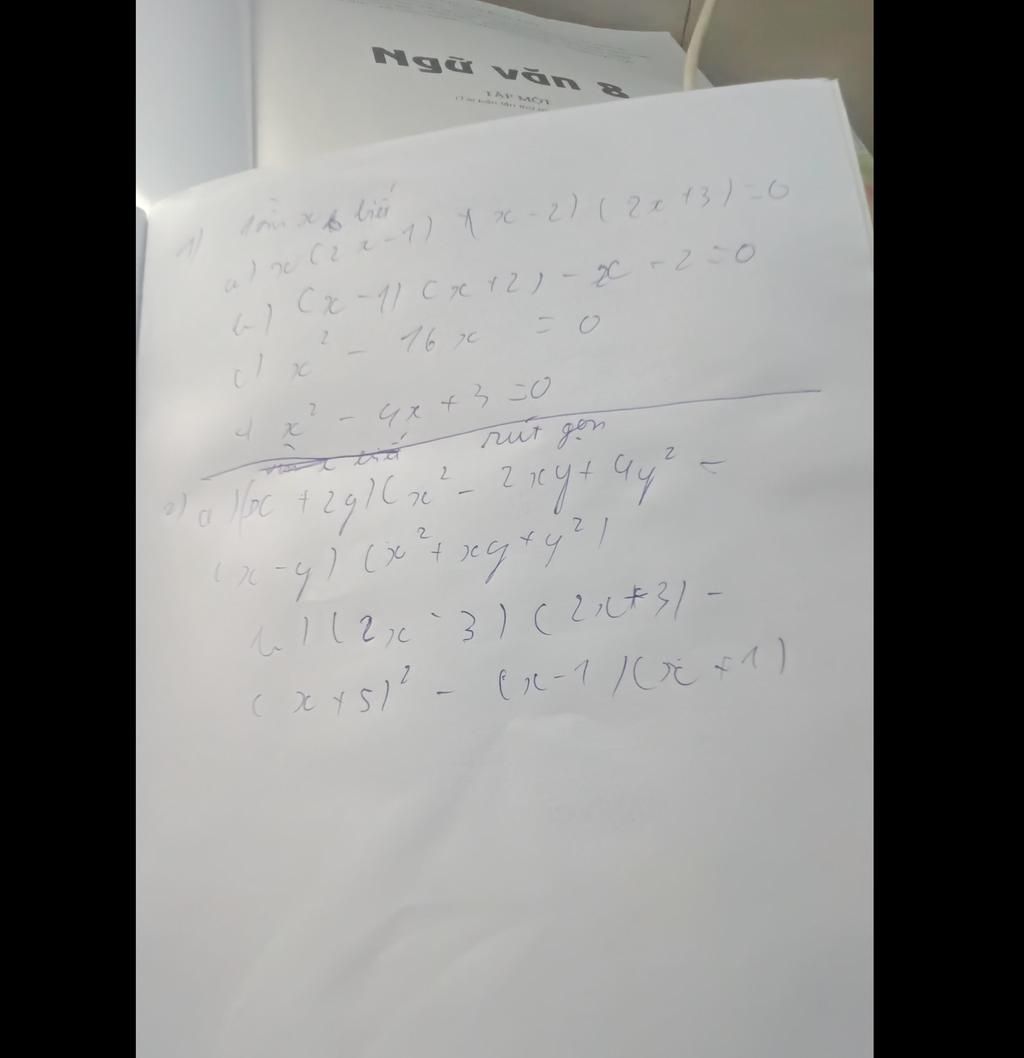 Ngữ văn 8
TẬP MỘT
1) tìm x biết
a) x (2x-1) + (x-2) (2x+3) = 0
b) (x-1) (x+2) - x - 2 = 0
c) x² - 16x = 0
d x² - 4x + 3 = 0
x biết rút gọn
2) a) (x + 2y) (x² - 2xy + 4y² -
(x-y) (x² + xy + y²)
b) (2x - 3) (2x + 3) -
(x+5)² - (x-1) (x+1)